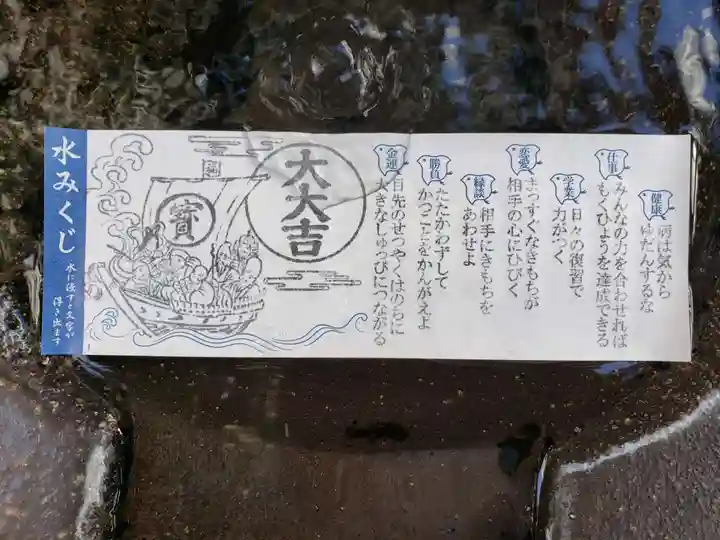 健康
病は気から
ゆだんするな
仕事
みんなの力を合わせれば
もくひょうを達成できる
学業
日々の復習で
力がつく
恋愛
まっすぐなきもちが
相手の心にひびく
縁談
相手にきもちを
あわせよ
勝負
たたかわずして
かつことをかんがえよ
金運
目先のせつやくはのちに
大きなしゅっぴにつながる
大大吉
寳
水みくじ
水に浸すと文字が
浮き出ます